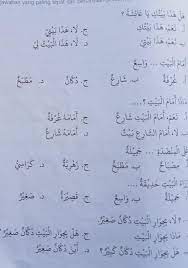 yang paling tepat
هَلْ هَذَا بَيْتُكِ يَا عَائِشَةُ ؟
أ. نَعَمْ، هَذَا بَيْتُكِ ج. لَا، هَذَا بَيْتِيْ
نَعَمْ، هَذَا بَيْتِيْ د. لَا، هَذَا الْبَيْتُ لِيْ
أَمَامَ الْبَيْتِ ... وَاسِعٌ
أ. غُرْفَةٌ ب. شَارِعٌ ج. دُكَّانٌ د. مَطْبَخٌ
مَاذَا أَمَامَ الْبَيْتِ ؟
أَمَامَ الْبَيْتِ شَارِعٌ ج. أَمَامَهُ غُرْفَةٌ
الْبَيْتِ شَارِعٌ د. أَمَامَهُ شَارِعٌ
الْمِنْضَدَةِ .... جَمِيْلَةٌ
مِصْبَاحٌ ب. مَطْبَخٌ ج. زَهْرِيَّةٌ د. كَرَاسِيُّ
الْبَيْتِ حَدِيْقَةٌ ....
جَمِيْلَةٌ ب. ج. قَصِيْرَةٌ د. صَغِيْرٌ
لَا، بِجِوَارِ الْبَيْتِ دُكَّانٌ صَغِيْرٌ
بِجِوَارِ الْبَيْتِ ؟ ج. هَلْ بِجِوَارِ الْبَيْتِ دُكَّانٌ صَغِيْرٌ
هَلْ بِجِوَارِ الْبَيْتِ دُكَّانٌ كَبِيْرٌ؟ د. أَيْنَ دُكَّانٌ صَغِيْرٌ